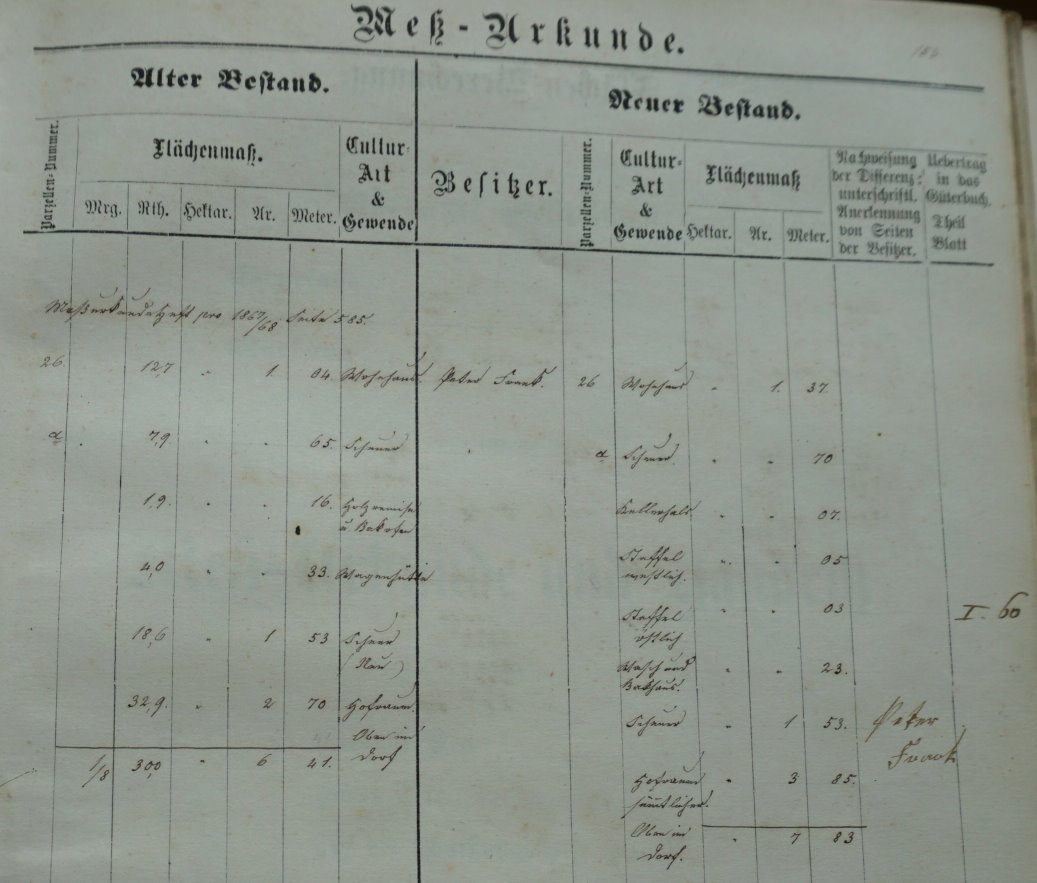 Meß-Urkunde.
154
Alter Bestand.
Neuer Bestand.
Parzellen-Nummer.
Flächenmaß.
Mrg. Rth. Hektar. Ar. Meter.
Cultur-Art & Gewende
Besitzer.
Parzellen-Nummer.
Cultur-Art & Gewende
Flächenmaß
Hektar. Ar. Meter.
Nachweisung der Differenz: unterschriftl. Anerkennung von Seiten der Besitzer.
Uebertrag in das Güterbuch. Theil Blatt
Meßurkundeheft pro 1867/68 Seite 585.
26 12,7 " 1. 04. Wohnhaus. Peter Frank. 26 Wohnhaus " 1. 37.
a 7,9. " " 65. Scheuer a Scheuer. " " 70
1,9. " " 16. Holzremise u Bakofen Kellerhals. " " 07.
4,0 " " 33. Wagenhütte Staffel westlich. " " 05
Staffel östlich " " 03
I. 60
18,6 " 1 53 Scheuer (Neu) Wasch und Bakhaus. " " 23.
32,9. " 2 70 Hofraum. Scheuer " 1 53. Peter Frank
Oben im Dorf
1/8 30,0 " 6 41.
Hofraum sämmtlicher. " 3 85.
Oben im Dorf. " 7 83